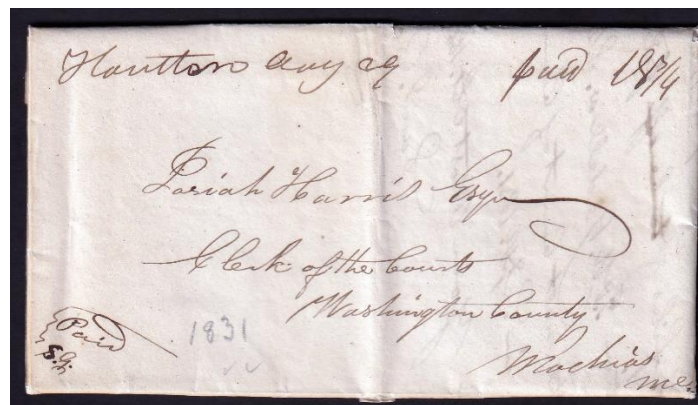 Houlton Aug 29 paid 18 3/4
Josiah Harris Esqr
Clerk of the Courts
Washington County
Machias
Me.
Paid
1831